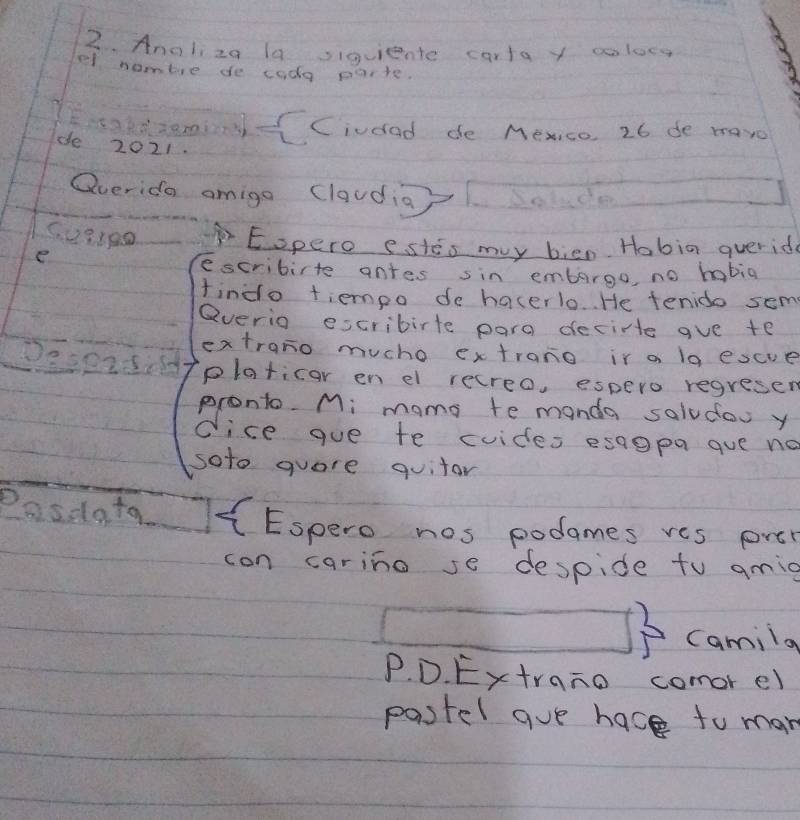 2. Analiza la siguiente carta y coloca
el nombre de cada parte.
{Ciudad de Mexico 26 de mayo
de 2021.
Querida amiga Claudia} Saludo
Cuerpo Espero estés muy bien. Habia querido
e escribirte antes sin embargo, no habia
tindo tiempo de hacerlo. He tenido sem
Queria escribirte para decirte que te
extraño mucho extraño ir a la escue
platicar en el recreo, espero regresem
pronto. Mi mama te manda saludos y
dice que te cuides esa que no
quitar
Pasdata { Espero nos podames
con cariño se despide tu amig
} camila
P.D. Extraño comer el
pastel que hace tu mam